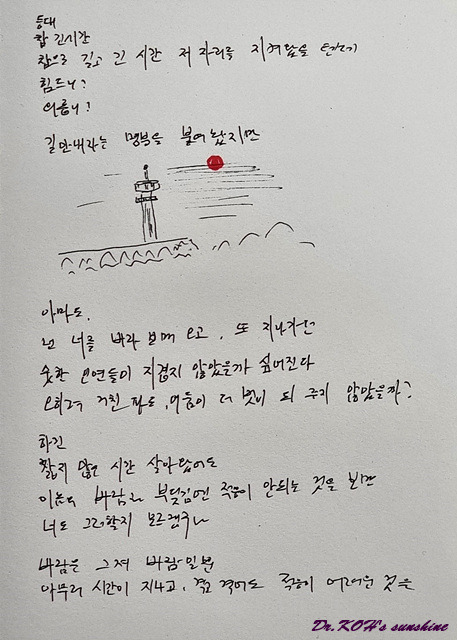 등대
참 긴시간
참으로 길고 긴 시간 저 자리를 지켜왔을 텐데
힘드니?
외롭니?
길안내라는 명분을 붙여 놨지만
아마도.
넌 너를 바라 보며 오고, 또 지나가던
숱한 인연들이 지겹지 않았을까 싶어진다
오히려 거친 파도, 어둠이 더 벗이 되 주지 않았을까?
하긴
짧지 않은 시간 살아왔어도
바람과 부딪김엔 적응이 안되는 것을 보면
너도 그러할지 모르겠구나
바람은 그저 바람일뿐
아무리 시간이 지나고, 겪고 겪어도 적응이 어려운 것을
Dr.KOH's sunshine